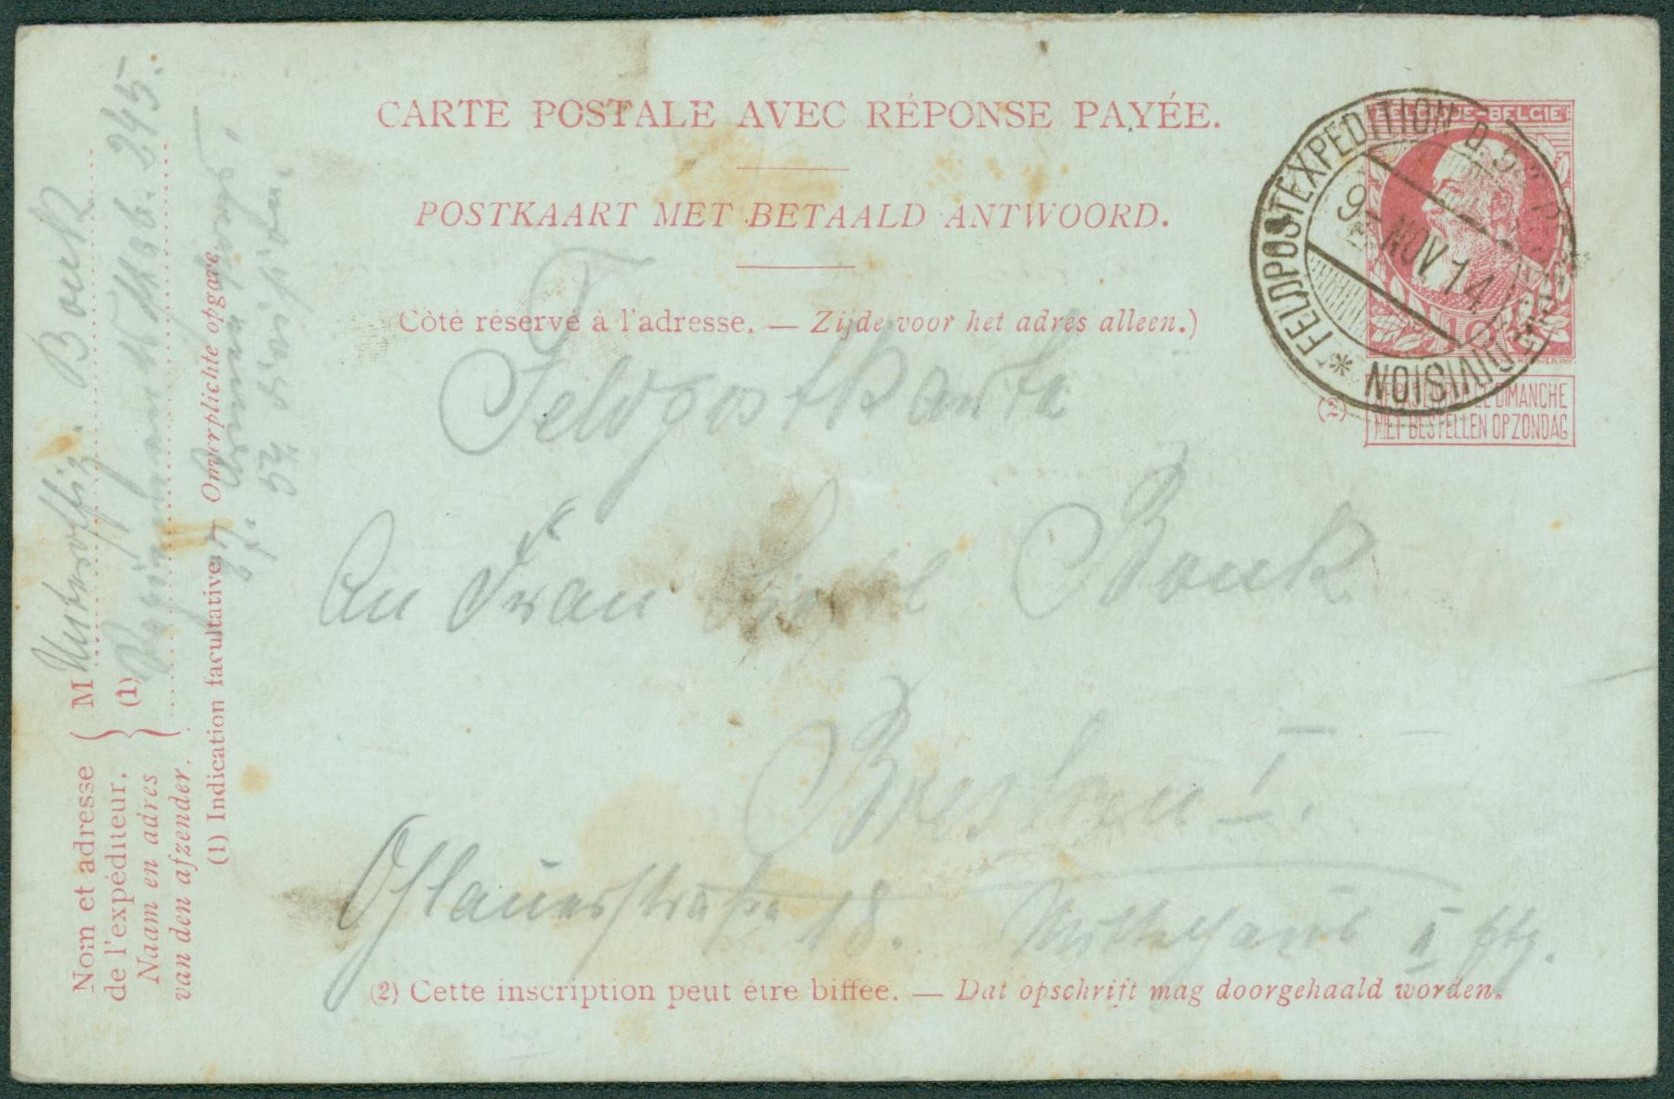 CARTE POSTALE AVEC RÉPONSE PAYÉE.
POSTKAART MET BETAALD ANTWOORD.
(Côté réservé à l'adresse. — Zijde voor het adres alleen.)
BELGIQUE-BELGIË
10
NE PAS LIVRER LE DIMANCHE
NIET BESTELLEN OP ZONDAG
(2)
* FELDPOSTEXPEDITION D.
DIVISION
9
NOV 14
Feldpostkarte
An Frau Bouk
Breslau I.
Ohlauerstraße 18. Mittelhaus II Etg.
(2) Cette inscription peut être biffée. — Dat opschrift mag doorgehaald worden.
Nom et adresse
de l'expéditeur.
Naam en adres
van den afzender.
M Unteroffiz. Bouk
(1) Regiment Stab. 245.
27. Armeekorps,
54 Division.
(1) Indication facultative — Onverplichte opgave.